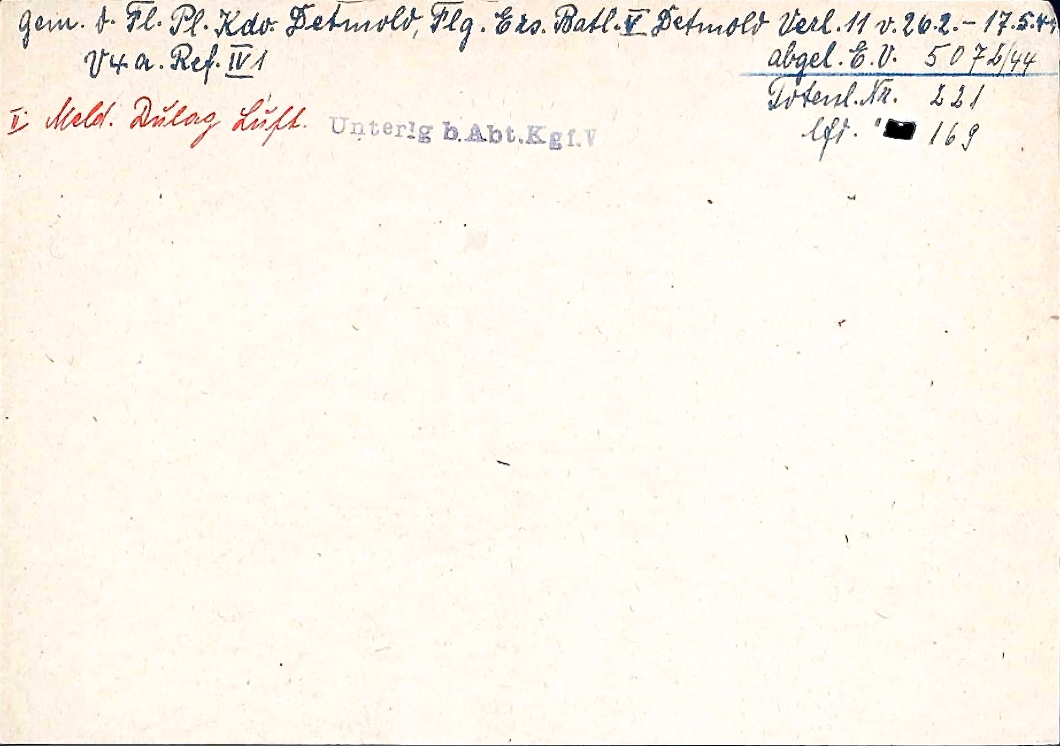 Gem. d. Fl. Pl. Kdo. Detmold, Flg. Ers. Batl. V Detmold Verl. 11 v. 26.2. - 17.5.44
V4a. Ref. IV1
abgel. E.V. 5072/44
Totenl. Nr. 221
lfd. " 169
II Meld. Dulag Luft. Unterlg b.Abt.Kgf.V